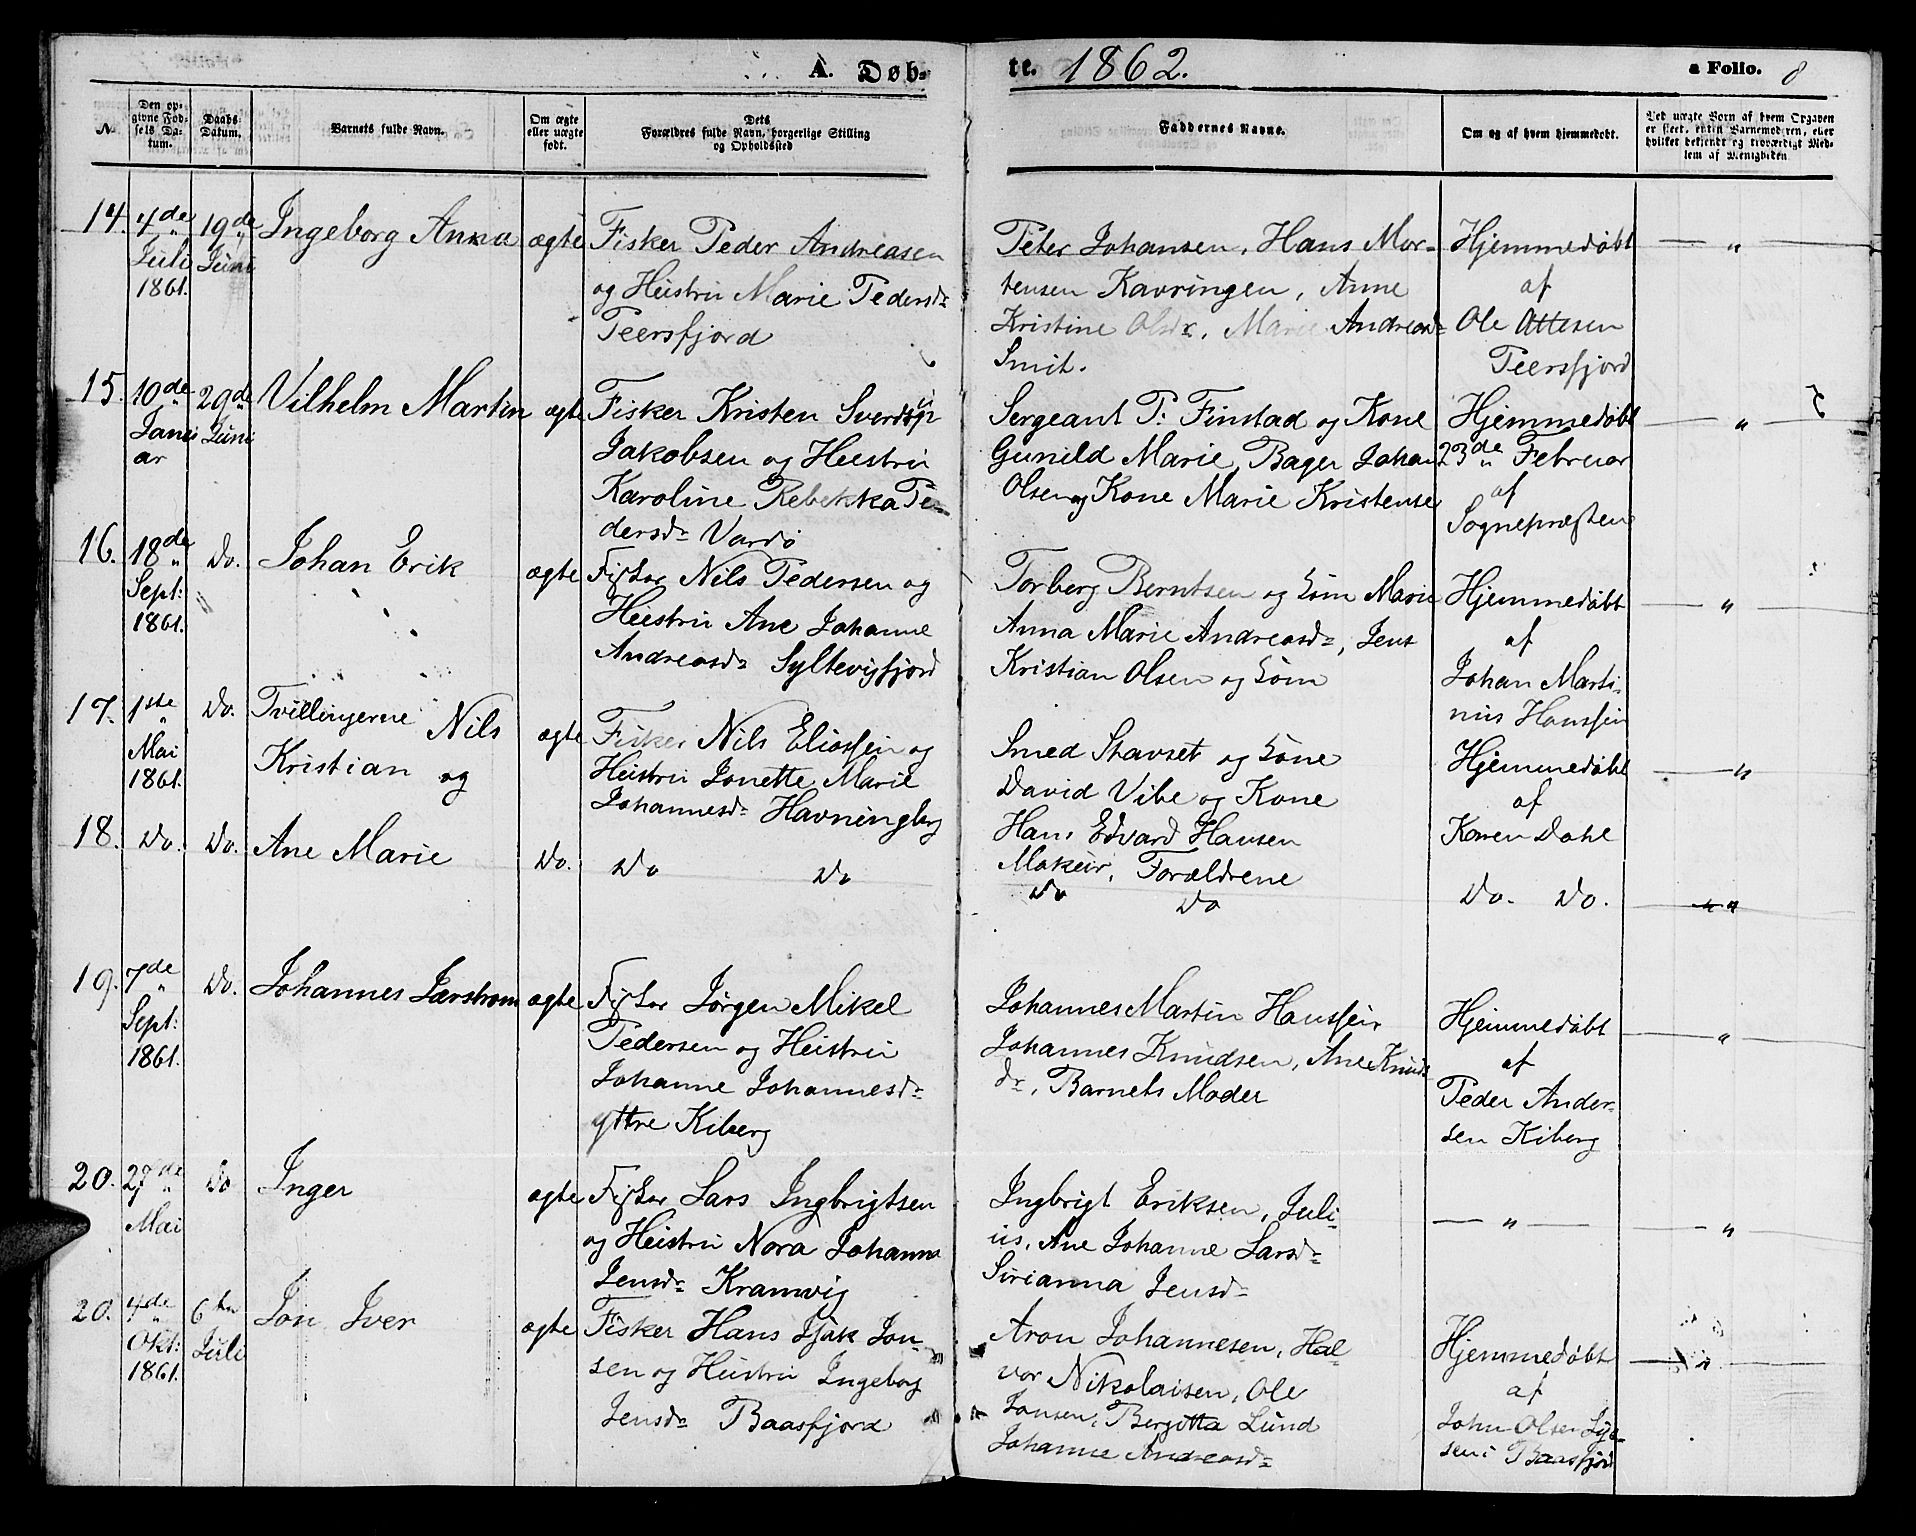 A. Døb-
te. 1862.
a Folio. 8
No.
Den opgivne Fødsels Datum.
Daabs Datum.
Barnets fulde Navn.
Om ægte eller uægte født.
Dets Forældres fulde Navn, borgerlige Stilling og Opholdssted
Faddernes Navne.
Om og af hvem hjemmedøbt.
Ved uægte Børn af hvem Opgaven er skeet, enten Barnemoderen, eller hvilket bekjendt og troværdigt Medlem af Menigheden
14. 4de Juli 1861. 19de Juni
Ingeborg Anna
ægte
Fisker Peder Andreasen
og Hustru Marie Pedersdr
Peersfjord
Peter Johansen, Hans Mor-
tensen Kavringen, Anne
Kristine Olsdr, Marie Andreasdr
Smit.
Hjemmedøbt
af
Ole Ottesen
Peersfjord
— " —
15. 10de Janu ar 29de Juni
Vilhelm Martin
ægte
Fisker Kristen Sverdrup
Jakobsen og Hustru
Karoline Rebekka Pe-
dersdr Vardø
Sergeant P. Finstad og Kone
Gunild Marie, Bager Johan
Olsen og Kone Marie Kristense
Hjemmedøbt
23de Februar
af
Sognepræsten
— " —
16. 18de Sept: 1861. Do.
Johan Erik
ægte
Fisker Nils Pedersen og
Hustru Ane Johanne
Andreasdr Syltevigfjord
Torberg Berntsen og Marie
Anna Marie Andreasdr, Jens
Kristian Olsen og
Hjemmedøbt
af
Johan Marti-
nus Hanssen
— " —
17. 1ste Mai 1861. Do.
Tvillingerne Nils
Kristian og
ægte
Fisker Nils Eliassen og
Hustru Jonette Marie
Johannesdr Havningberg
Smed Stavset og Kone
David Vibe og Kone
Hans Edvard Hansen
Makeur, Forældrene
Hjemmedøbt
af
Karen Dahl
— "
18. Do. Do.
Ane Marie
Do.
Do Do
Do Do
Do. Do.
" "
19. 7de Sept: 1861. Do.
Johannes Larstrom
ægte
Fisker Jørgen Mikel
Pedersen og Hustru
Johanne Johannesdr
yttre Kiberg
Johannes Martin Hanssen,
Johannes Knudsen, Ane Knuds
dr, Barnets Moder
Hjemmedøbt
af
Peder Ander-
sen Kiberg
— " —
20. 27de Mai Do
Inger
ægte
Fisker Lars Ingbrigtsen
og Hustru Nora Johanna
Jensdr Kramvig
Ingbrigt Eriksen, Juli-
us, Ane Johanne Larsdr
Sirianna Jensdr
— " —
— " —
20. 4de Okt: 1861. 6te Juli
Jon Iver
ægte
Fisker Hans Isak Jon-
sen og Hustru Ingeborg
Jensdr Baasfjord
Aron Johannesen, Hal-
vor Nikolaisen, Ole
Jonsen, Bergitta Lund
Johanne Andreasdr
Hjemmedøbt
af
John Olsen
Baasfjord
— " —